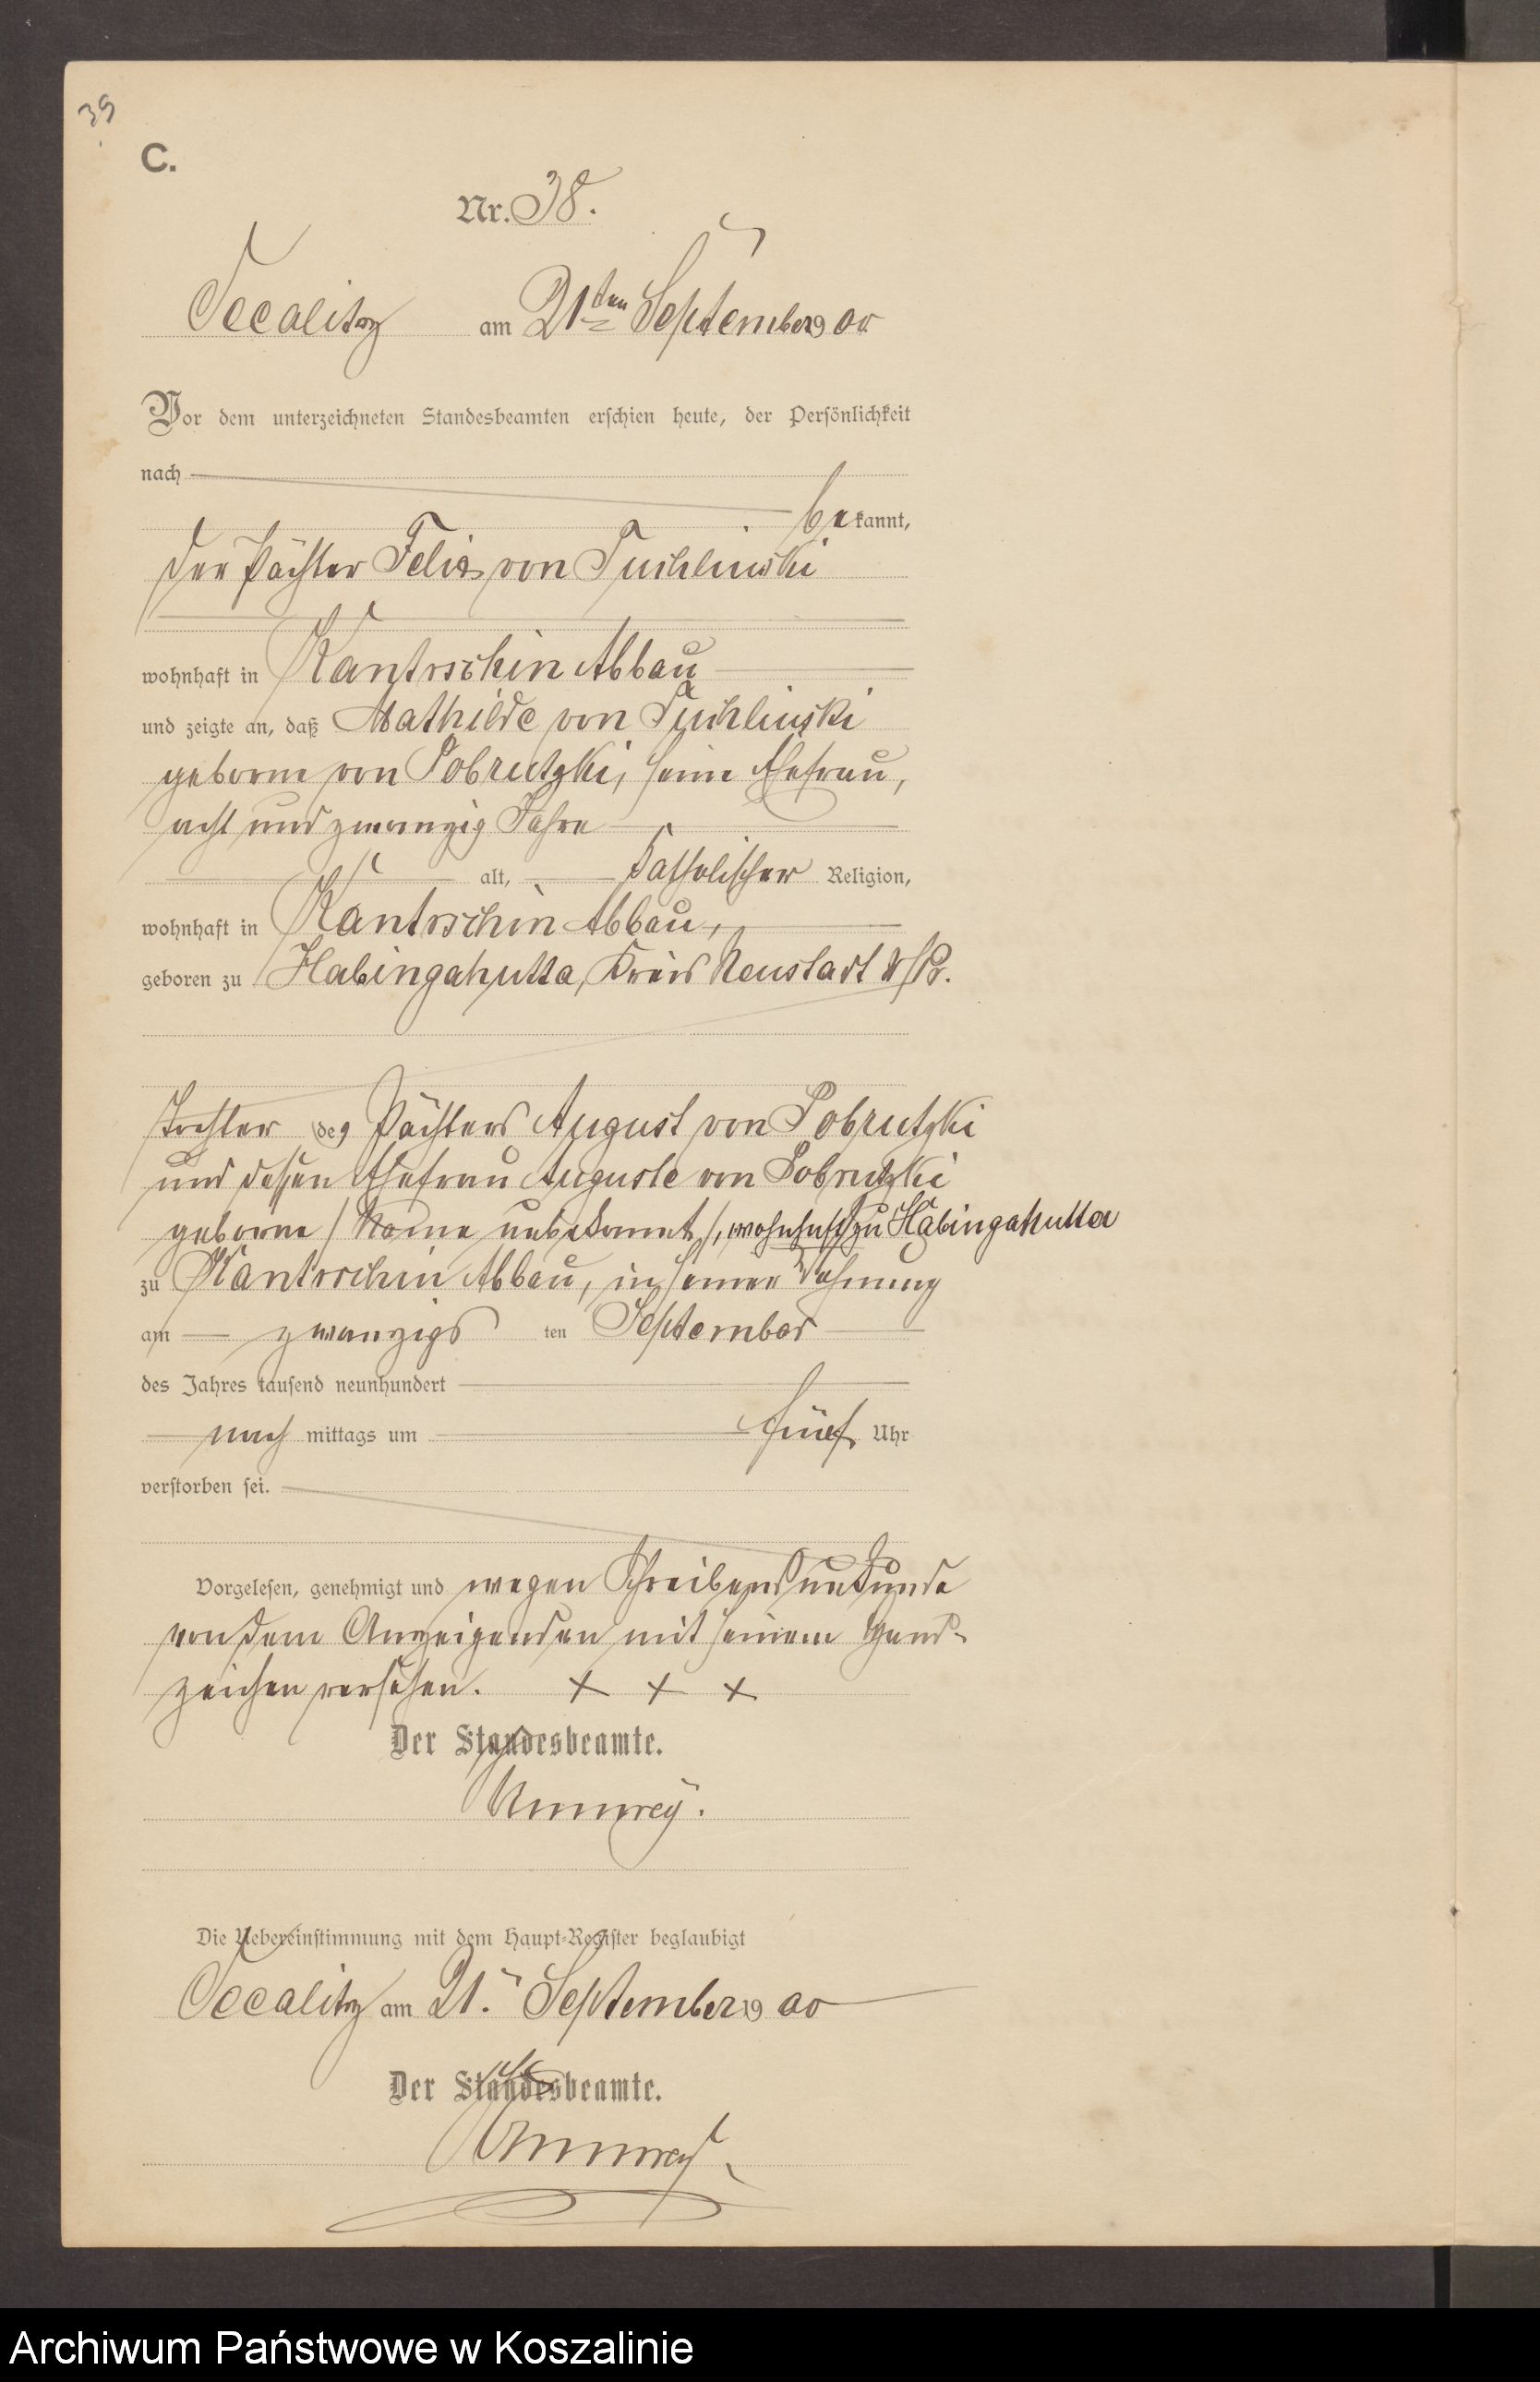 39
C.
Nr. 38.
Occalitz am 21ten September 1900
Vor dem unterzeichneten Standesbeamten erschien heute, der Persönlichkeit
nach
bekannt,
der Pächter Felix von Tuchlinski
wohnhaft in Kantrschin Abbau
und zeigte an, daß Mathilde von Tuchlinski
geborne von Pobrutzki, seine Ehefrau,
acht und zwanzig Jahre
alt, katholischer Religion,
wohnhaft in Kantrschin Abbau,
geboren zu Habingahutta, Kreis Neustadt W/Pr.
Tochter des Pächters August von Pobrutzki
und dessen Ehefrau Auguste von Pobrutzki
geborne /Name unbekannt/, wohnhaft zu Habingahutta
zu Kantrschin Abbau, in seiner Wohnung
am zwanzigs ten September
des Jahres tausend neunhundert
nach mittags um fünf Uhr
verstorben sei.
Vorgelesen, genehmigt und wegen Schreibensunkunde
von dem Anzeigenden mit seinem Hand-
zeichen versehen. + + +
Der Standesbeamte.
Die Uebereinstimmung mit dem Haupt-Register beglaubigt
Occalitz am 21. September 1900
Der Standesbeamte.
Archiwum Państwowe w Koszalinie